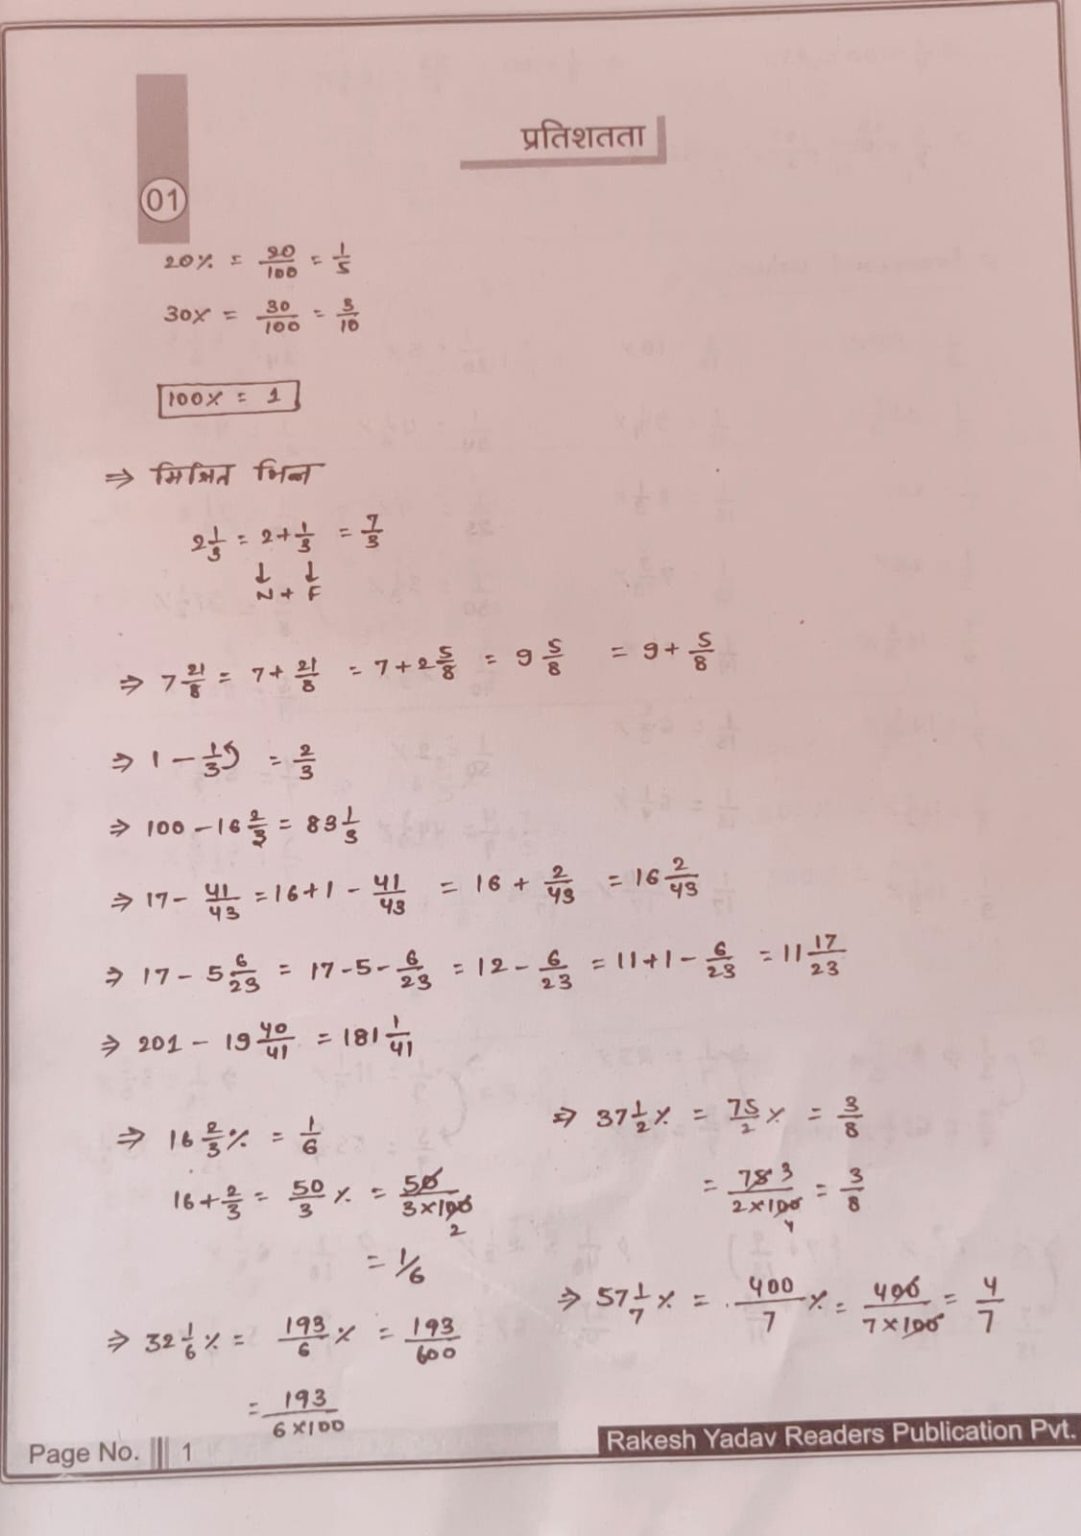 प्रतिशतता
01
20% = 20/100 = 1/5
30% = 30/100 = 3/10
100% = 1
⇒ मिश्रित भिन्न
2 1/3 = 2 + 1/3 = 7/3
↓ ↓
N + F
⇒ 7 21/8 = 7 + 21/8 = 7 + 2 5/8 = 9 5/8 = 9 + 5/8
⇒ 1 - 1/3 = 2/3
⇒ 100 - 16 2/3 = 83 1/3
⇒ 17 - 41/43 = 16 + 1 - 41/43 = 16 + 2/43 = 16 2/43
⇒ 17 - 5 6/23 = 17 - 5 - 6/23 = 12 - 6/23 = 11 + 1 - 6/23 = 11 17/23
⇒ 201 - 19 40/41 = 181 1/41
⇒ 16 2/3 % = 1/6
16 + 2/3 = 50/3 % = 50/3×100 2
= 1/6
⇒ 32 1/6 % = 193/6 % = 193/600
= 193/6×100
⇒ 37 1/2 % = 75/2 % = 3/8
= 75 3/2×100 4 = 3/8
⇒ 57 1/7 % = 400/7 % = 400/7×100 = 4/7
Page No. 1
Rakesh Yadav Readers Publication Pvt.